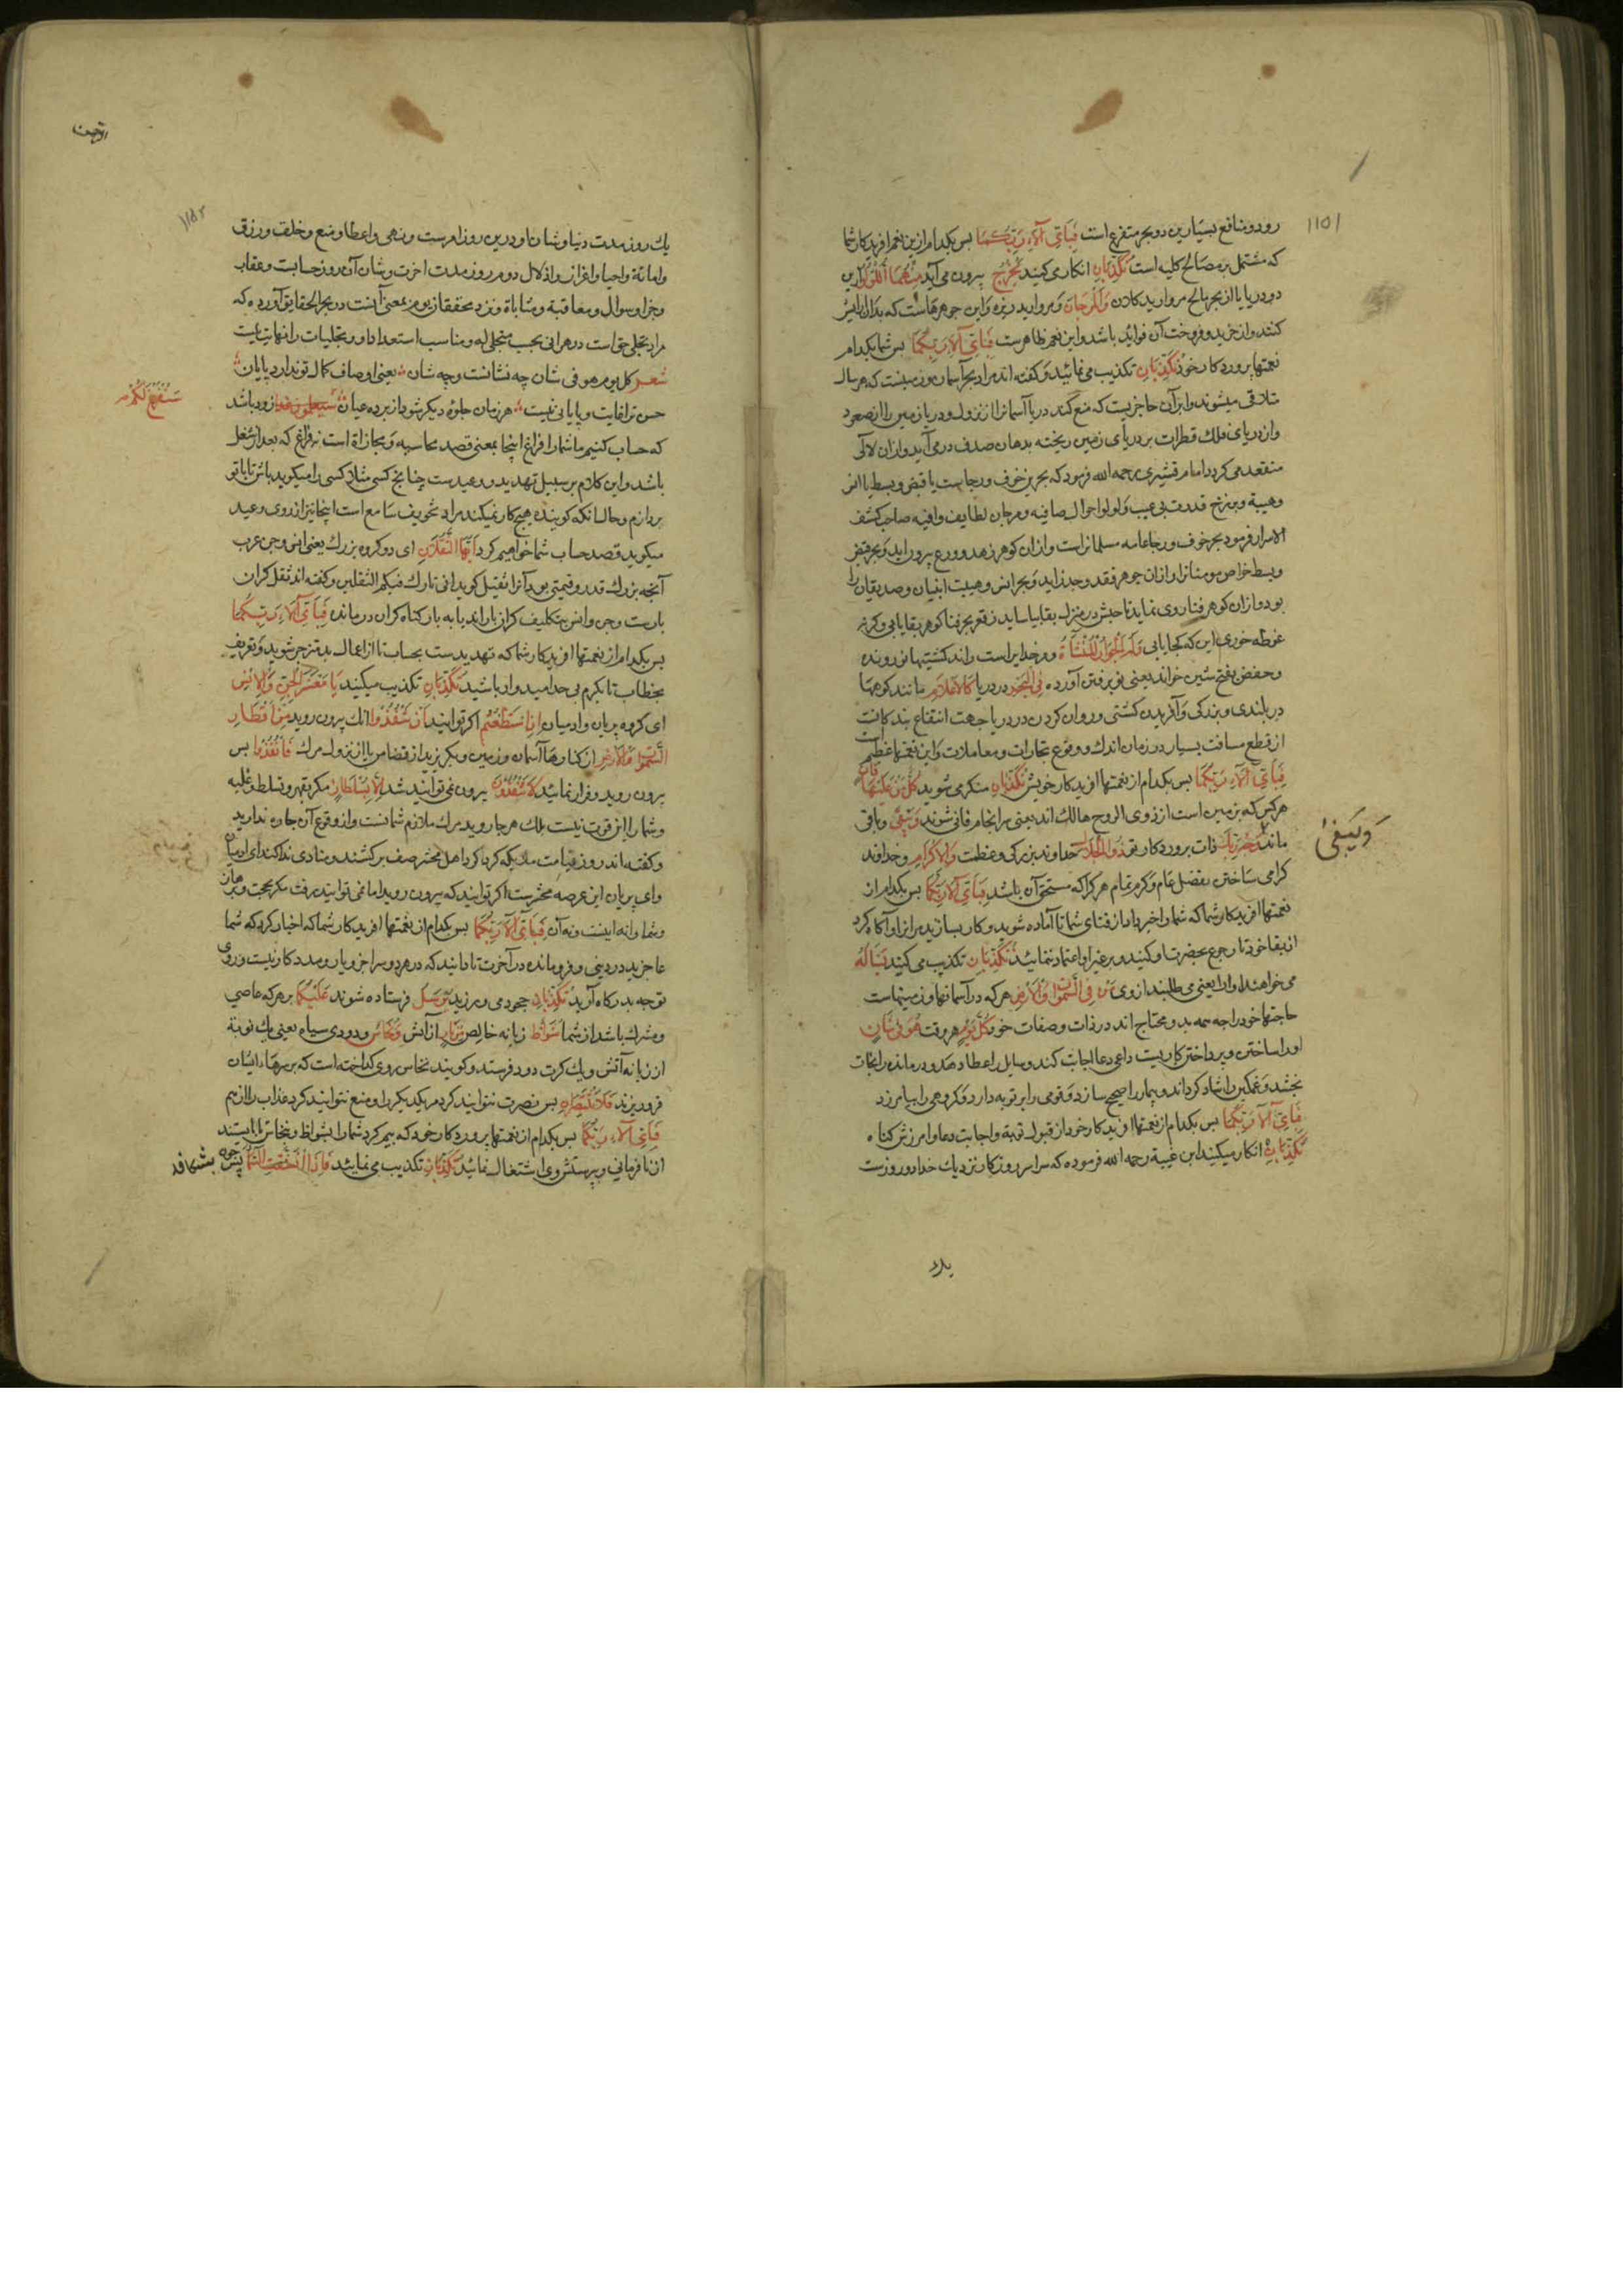 رود و منافع بسیار بدین دو بحر متفرع است فَبِاَیِّ آلَاءِ رَبِّكُمَا بس بکدام از ین نعم افریدکار شما
که مشتمل بر مصالح کلیه است تُكَذِّبَانِ انکار می کنید یَخْرُجُ بیرون می آید مِنْهُمَا اللُّؤْلُؤُ از این
دو دریا یا از بحر مالح مروارید کلان وَالْمَرْجَانُ و مروارید ریزه و این جوهرهاست که بدان
کنند و از خرید و فروخت آن فواید باشد و این نعم ظاهرست فَبِاَیِّ آلَاءِ رَبِّكُمَا بس شما بکدام
نعمتها برورد کار خود تُكَذِّبَانِ تکذیب می نمائید و کفته اند مراد بحر آسمان و زمینست که هر سال
متلاقی میشوند و ابر آن حاجزیست که منع کند دریا آسمانرا از نزول و دریا زمین را از صعود
و از دریای فلك قطرات بر دریای زمین ریخته بدهان صدف در می آید و از ان لآلی
منعقد می کردد امام قشیری رحمه الله فرمود که بحرین خوف و رجاست یا قبض و بسط یا انس
و هیبة و برزخ قدرت بی عیب و لؤلؤ احوال صافیه و مرجان لطایف وافیه صاحب کشف
الاسرار فرمود بحر خوف و رجا عامه مسلمانراست و از ان کوهر زهد و ورع بیرون اید و بحر قبض
و بسط خواص مومنانرا و از ان جوهر فقد و وجد زاید و بحر انس و هیبت انبیا و صدیقان را
بود و از ان کوهر فنا روی نماید تا صاحبش در منزل بقا بیاساید ز قعر بحر فنا کوهر بقا یابی و کرنه
غوطه خوری این کهر کجا یابی وَلَهُ الْجَوَارِ الْمُنْشَآتُ و مر خدایراست راند کشتیها نو رونده
و حفص بفتح شین خواند یعنی نو برفتن آورده فِی الْبَحْرِ در دریا كَالْاَعْلَامِ مانند کوهها
در بلندی و بزرکی و آفریدن کشتی و روان کردن در دریا جهت انتفاع بندکانست
از قطع مسافت بسیار در زمان اندك و وقوع تجارات و معاملات و این نعمتها عظیم است
فَبِاَیِّ آلَاءِ رَبِّكُمَا بس بکدام از نعمتها افریدکار خویش تُكَذِّبَانِ منکر می شوید كُلُّ مَنْ عَلَیْهَا فَانٍ
هرکس که بر زمین است از ذوی الروح هالك اند یعنی سر انجام فانی شوند وَیَبْقٰی و باقی
ماند وَجْهُ رَبِّكَ ذات برورد کار تو ذُو الْجَلَالِ خداوند بزرکی و عظمت وَالْاِكْرَامِ و خداوند
کرامی ساختن بفضل عام و کرم تمام هر کرا که مستحق آن باشد فَبِاَیِّ آلَاءِ رَبِّكُمَا بس بکدام از
نعمتها افریدکار شما که شما را خبر داد از فنای شما تا آماده شوید و کار بسازید بر ان و آکاه کرد
از بقا خود تا رجوع بحضرت او کنید و بر غیر او اعتماد ننمائید تُكَذِّبَانِ تکذیب می کنید یَسْاَلُهُ
می خواهند او را یعنی می طلبند از وی مَنْ فِی السَّمٰوَاتِ وَالْاَرْضِ هر که در آسمانها و زمینهاست
حاجتها خود را چه همه بدو محتاج اند در ذات و صفات خود كُلَّ یَوْمٍ هر وقت هُوَ فِی شَانٍ
او را ساختن و پرداختن کاریست داعی دعا اجابت کند و سایل را عطا دهد و درمانده را نجات
بخشد و غمکین را شاد کرداند و بیمار را صحیح سازد و قومی را بر توبه دارد و کروهی را بیامرزد
فَبِاَیِّ آلَاءِ رَبِّكُمَا بس بکدام از نعمتها افریدکار خود از قبول توبة و اجابت دعا و امرزش کناه
تُكَذِّبَانِ انکار میکنید ابن عیینة رحمه الله فرموده که سراسر روزکار نزدیك خدا دو روزست
۱۱۵۱
وَیَبْقٰی
یك
الرحمن
۱۱۵۲
یك روز مدت دنیا و شان او درین روز امرست و نهی و اعطا و منع و خلق و رزق
و اماتة و احیا و اعزاز و اذلال دوم روز مدت اخرت و شان آن روز حسابست و عقاب
و جزا و سوال و معاقبة و مثاباة و نزد محققان یوم بمعنی آنست در بحر الحقایق آورده که
مراد تجلی حق است در هر آنی بحسب متجلی له و مناسب استعداد او و تجلیات را نهایت نیست
شعر کل یوم هو فی شان چه نشانست و چه شان یعنی اوصاف کمال تو ندارد پایان
حسن ترا غایت و پایانی نیست هر زمان جلوه دیکر شود از پرده عیان زود باشد
سَنَفْرُغُ لَكُمْ
که حساب کنیم ما شما را فراغ اینجا بمعنی قصد محاسبه و مجازاة است نه فراغی که بعد از شغل
باشد و این کلام بر سبیل تهدید و وعیدست چنانچ کسی مثلا کسی را میکوید باش تا با تو
پردازم و حال انکه کوینده هیچ کار نمیکند مراد تخویف سامع است اینجا نیز از روی وعید
میکوید قصد حساب شما خواهیم کرد اَیُّهَا الثَّقَلَانِ ای دو کروه بزرك یعنی انس و جن عرب
آنچه بزرك قدر و قیمتی بود آنرا ثقیل کوید انی تارك فیکم الثقلین و کفته اند ثقل کران
بارست و جن و انس بتکلیف کران باراند یا به بار کناه کران درمانده فَبِاَیِّ آلَاءِ رَبِّكُمَا
بس بکدام از نعمتها افریدکار شما که تهدیدست بحساب تا از اعمال بد منزجر شوید و تعریف
بخطاب تا بکرم بی حد امیدوار باشید تُكَذِّبَانِ تکذیب میکنید یَا مَعْشَرَ الْجِنِّ وَالْاِنْسِ
ای کروه پریان و ادمیان اِنِ اسْتَطَعْتُمْ اکر توانید اَنْ تَنْفُذُوا انك بیرون روید مِنْ اَقْطَارِ
السَّمٰوَاتِ وَالْاَرْضِ از کنارها آسمان و زمین و بکریزید از قضا من یا از نزول مرك فَانْفُذُوا بس
بیرون روید و فرار نمائید لَا تَنْفُذُونَ بیرون نمی توانید شد اِلَّا بِسُلْطَانٍ مکر بقهر و تسلط و غلبه
و شما را این قوت نیست بلك هر جا روید مرك ملازم شماست و از وقوع آن چاره ندارید
و کفته اند روز قیامت ملایکه کرد بر کرد اهل محشر صف بر کشند و منادی ندا کند ای ادمیان
و ای پریان این عرصه محشرست اکر توانید که بیرون روید اما نمی توانید رفت مکر بحجت و برهان
و شما را نه اینست و نه آن فَبِاَیِّ آلَاءِ رَبِّكُمَا بس بکدام از نعمتها افریدکار شما که اخبار کرد که شما
عاجزید در دنیی و فرومانده در آخرت تا دانید که در هر دو سرا جز و یار و مدد کار نیست و روی
توجه بدرکاه آرید تُكَذِّبَانِ جحود می ورزید یُرْسَلُ فرستاده شوند عَلَیْكُمَا بر هر که عاصی
و مشرك باشد از شما شُوَاظٌ زبانه خالص مِنْ نَارٍ از آتش وَنُحَاسٌ و دودی سیاه یعنی یك نوبة
از زبانه آتش و یك کرت دود فرستد و کویند نحاس روی کداخته است که بر سرهاء ایشان
فرو ریزند فَلَا تَنْتَصِرَانِ بس نصرت نتوانید کرد مر یکدیکر را و منع نتوانید کرد عذاب را از هم
فَبِاَیِّ آلَاءِ رَبِّكُمَا بس بکدام از نعمتها برورد کار خود که بیم کرد شما را بشواظ و نحاس تا باز ایستید
از نا فرمانی و پرستش وی اشتغال نمائید تُكَذِّبَانِ تکذیب می نمائید فَاِذَا انْشَقَّتِ السَّمَاءُ پس چون بشکافد